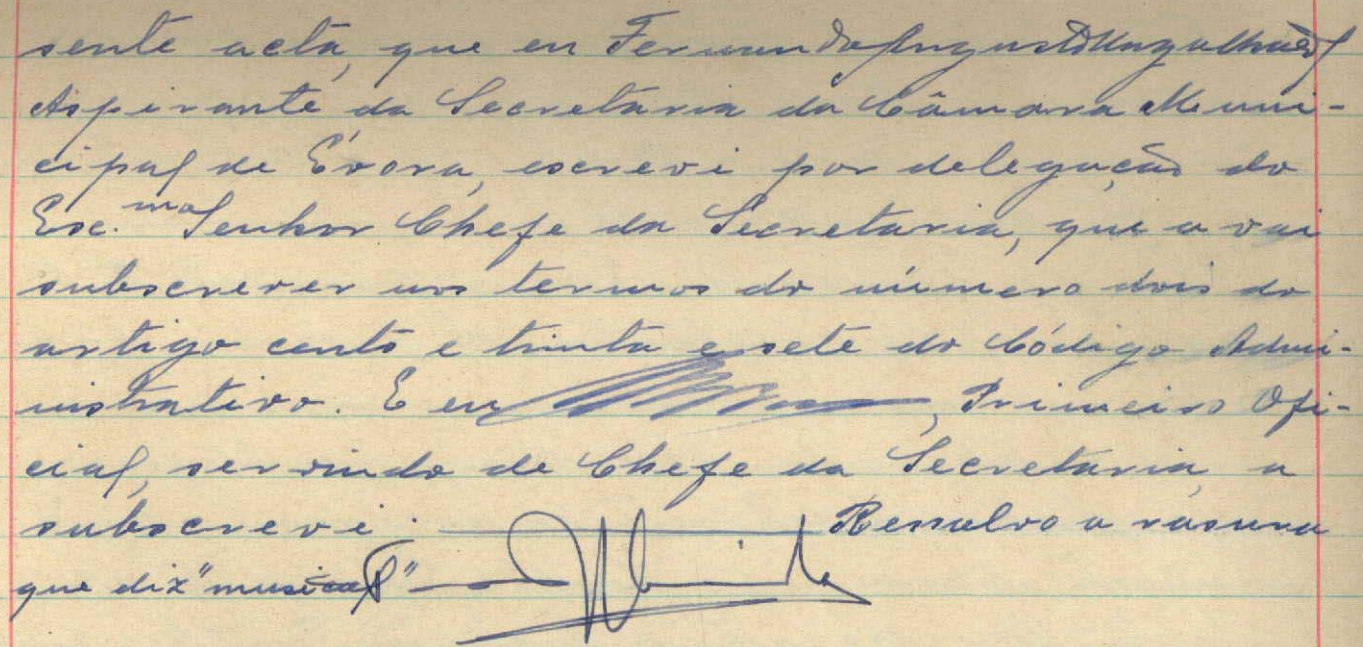 sente acta, que eu Fernando Augusto Magalhães
Aspirante da Secretaria da Câmara Muni-
cipal de Évora, escrevi por delegação do
Exc.mo Senhor Chefe da Secretaria, que a vai
subscrever nos termos do número dois do
artigo cento e trinta e sete do Código Admi-
nistrativo. E eu, Primeiro Ofi-
cial, servindo de Chefe da Secretaria, a
subscrevi. Ressalvo a rasura
que diz "musical"